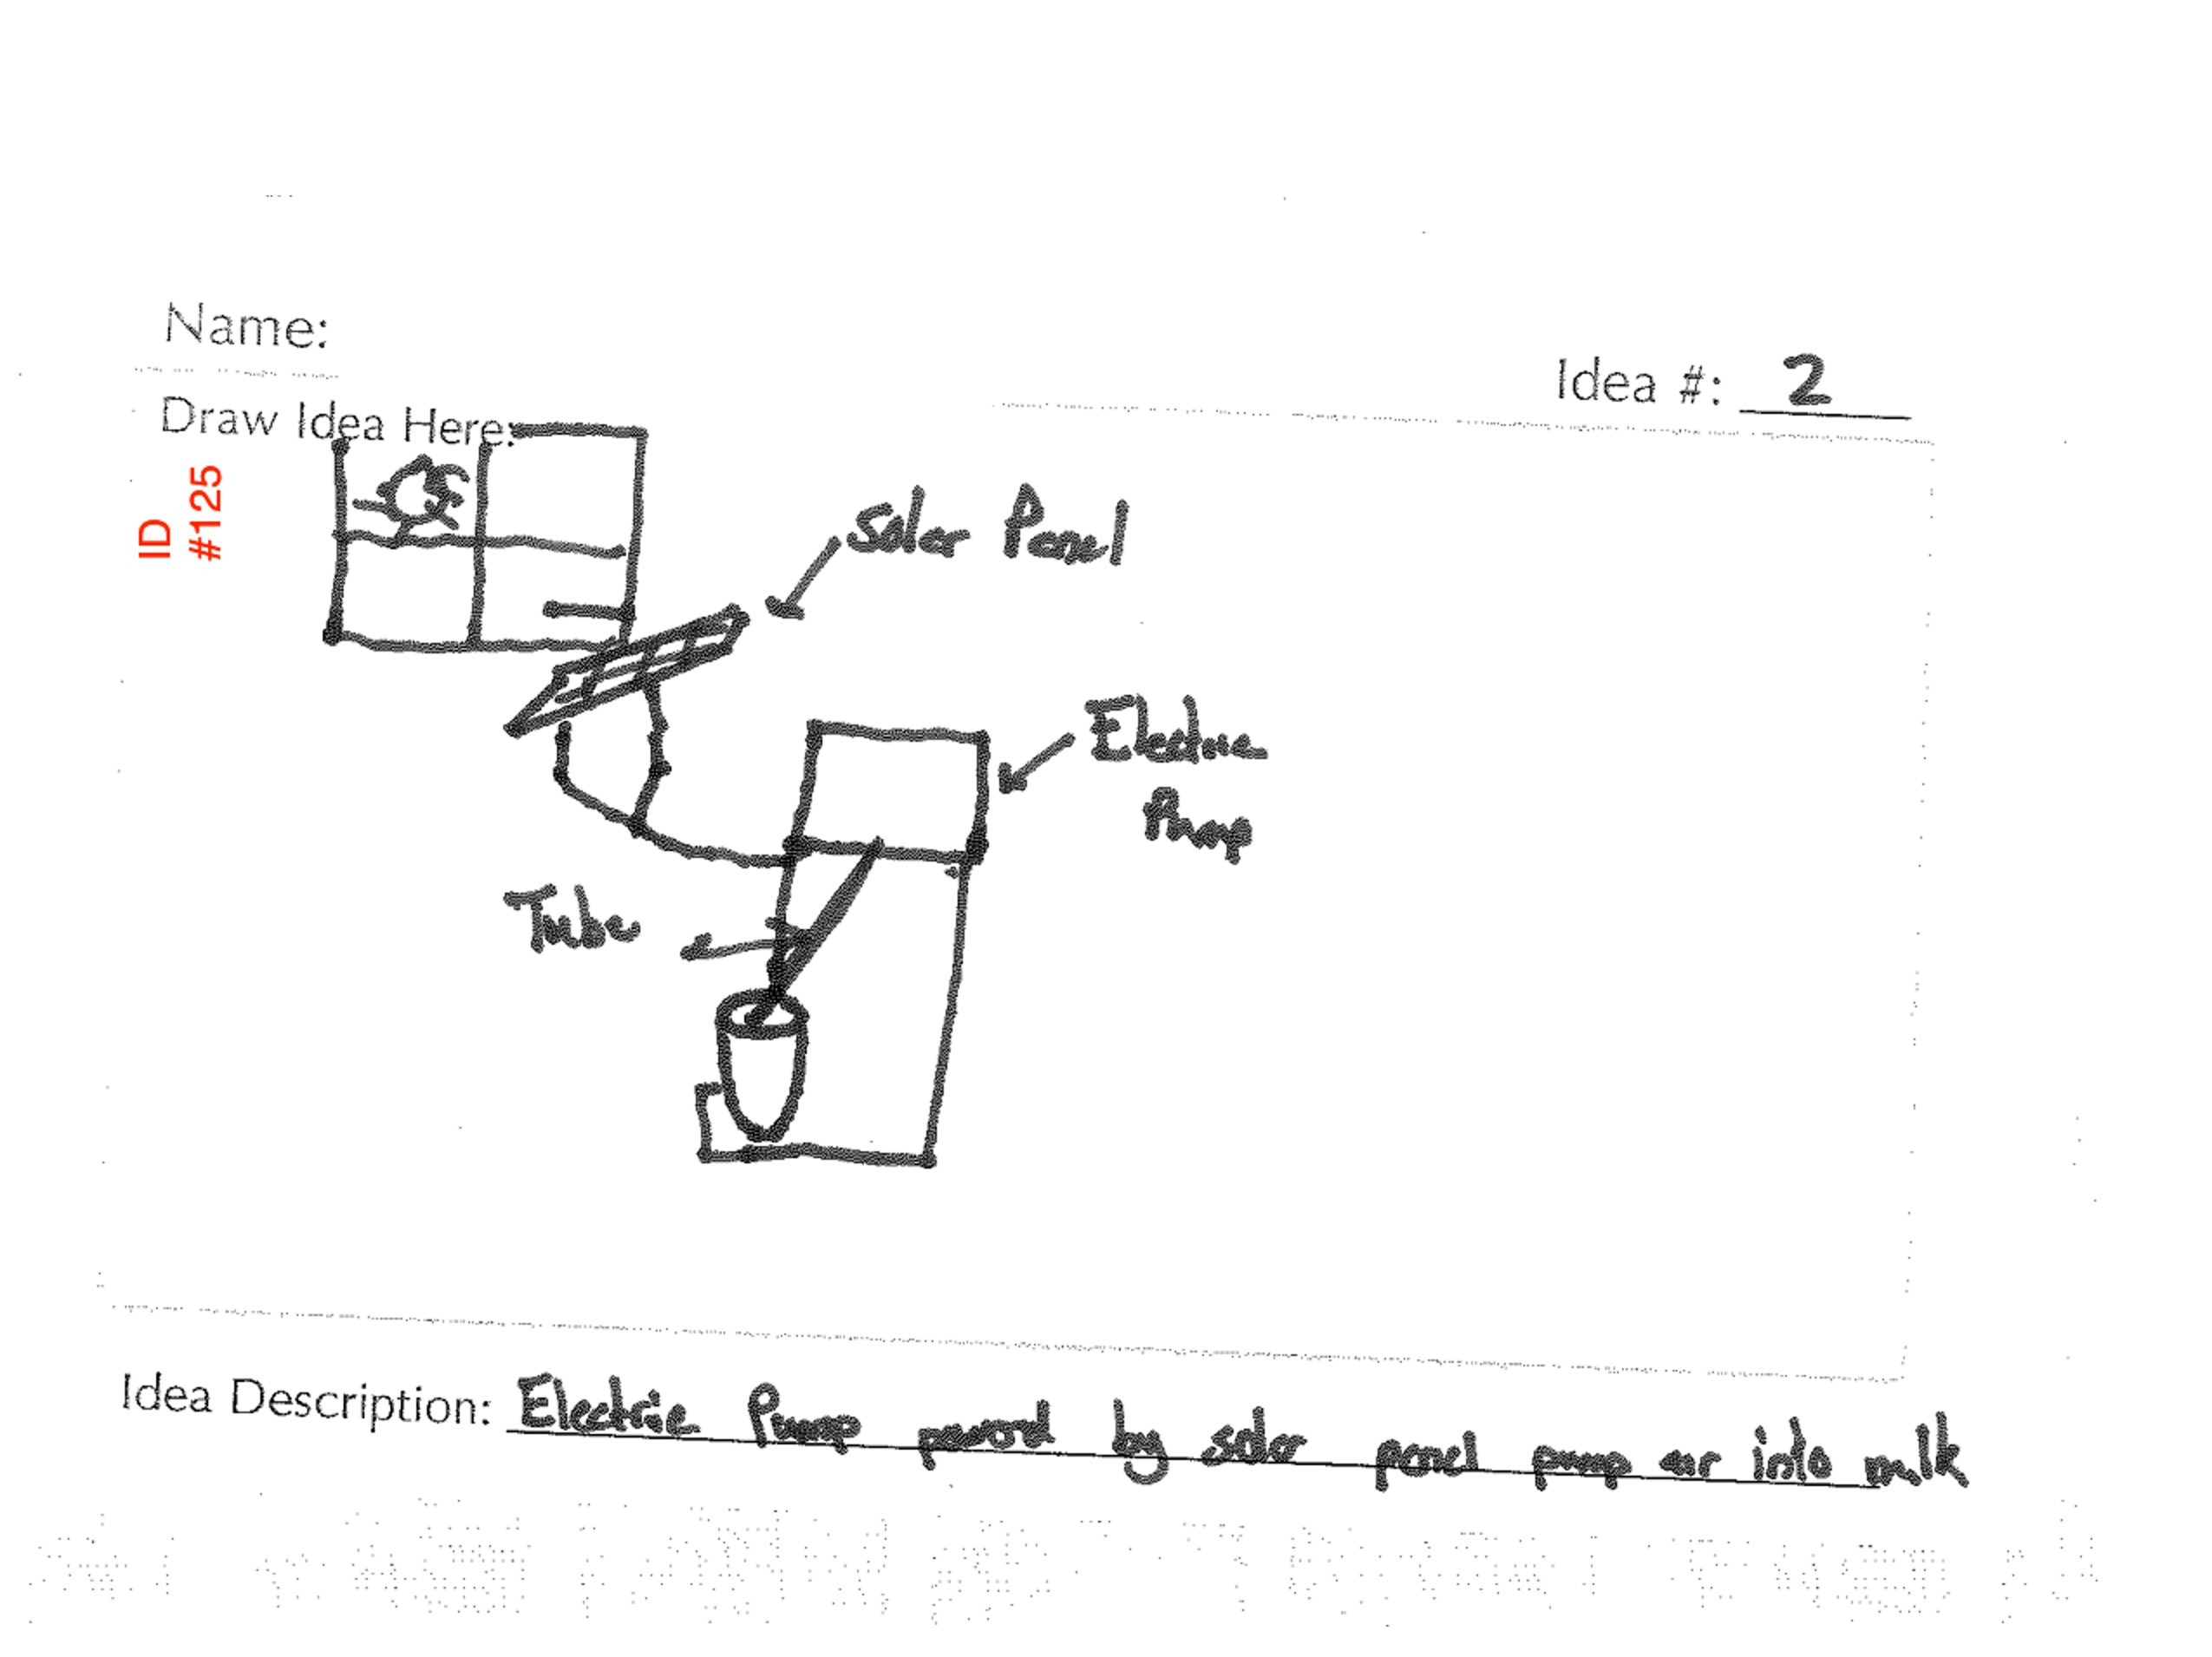 Name:
Idea #: 2
Draw Idea Here:
ID
#125
Solar Panel
Electric
Pump
Tube
Idea Description: Electric Pump powerd by solar panel pump air into milk